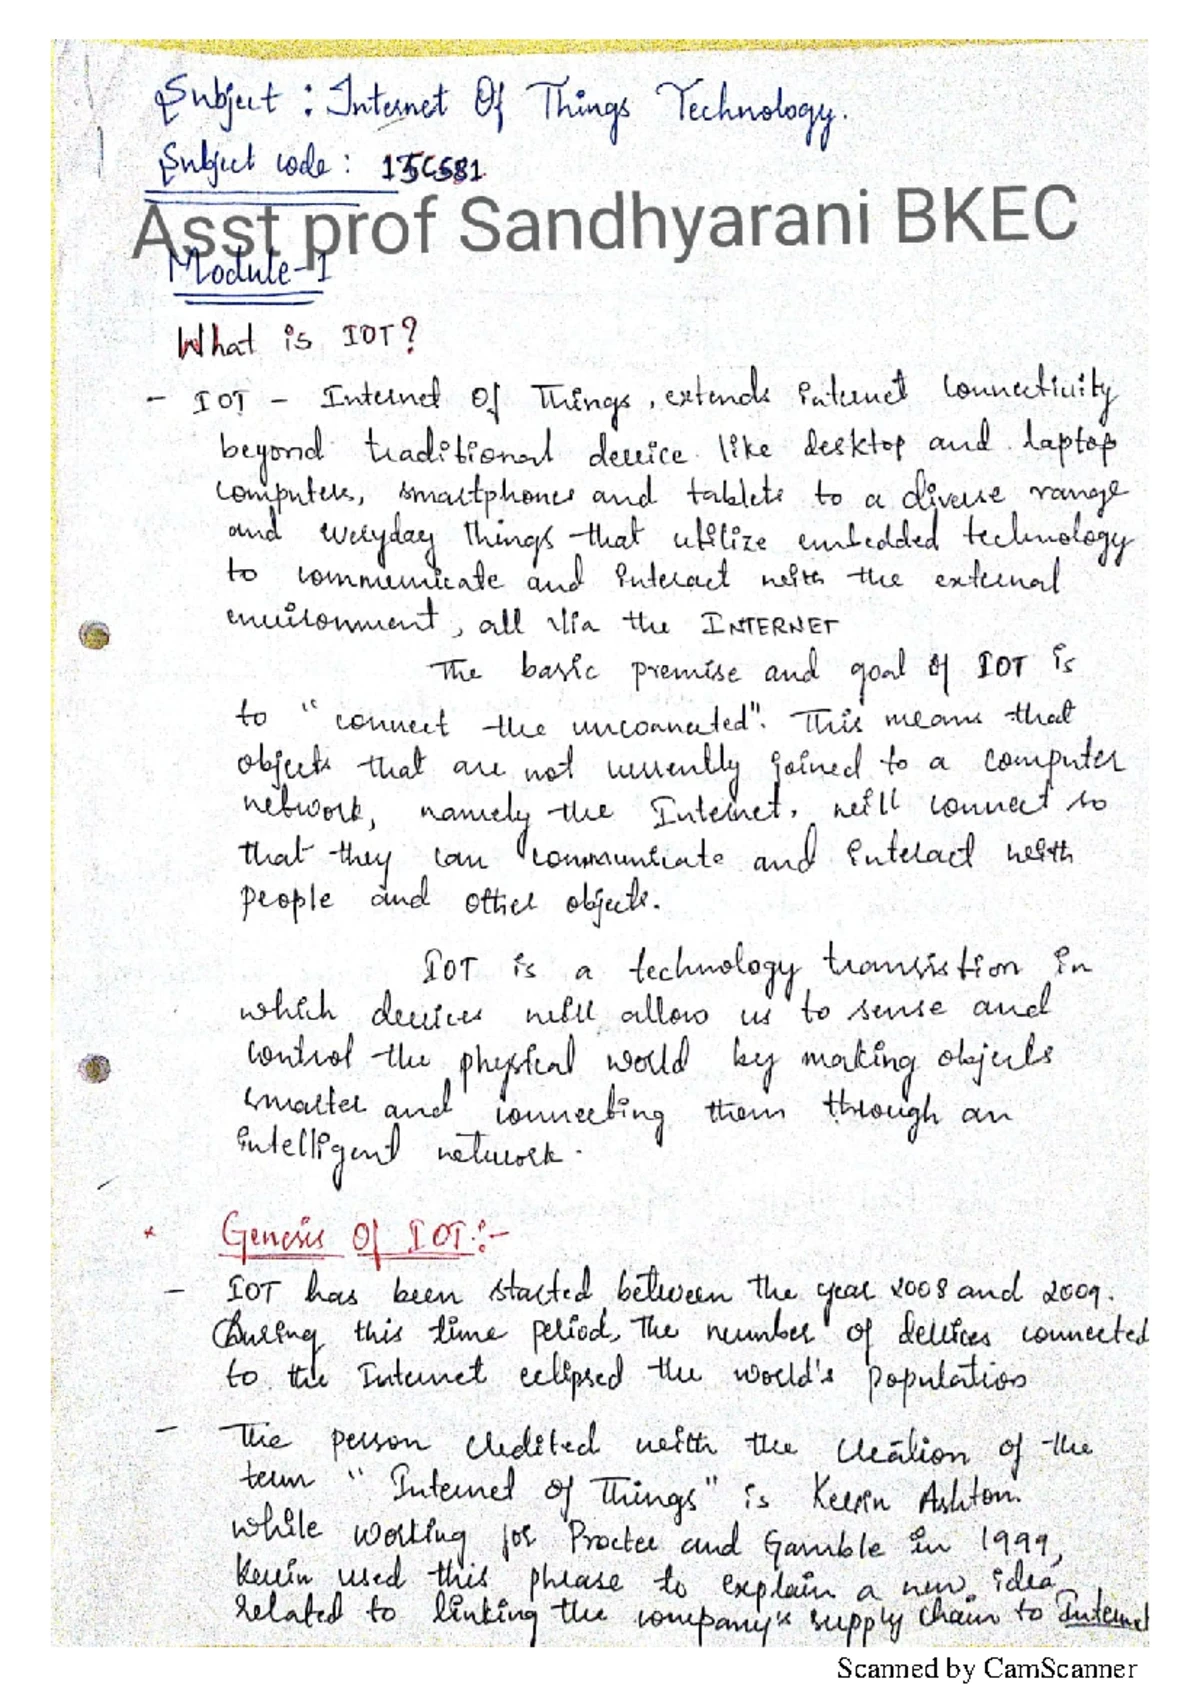 Subject : Internet Of Things Technology.
Subject code : 15CS81
Asst prof Sandhyarani BKEC
Module-I
What is IOT?
- IOT - Internet Of Things, extends internet connectivity
beyond traditional device like desktop and laptop
computers, smartphones and tablets to a diverse range
and everyday things that utilize embedded technology
to communicate and interact with the external
environment, all via the INTERNET
The basic premise and goal of IOT is
to "connect the unconnected". This means that
objects that are not currently joined to a computer
network, namely the Internet, will connect so
that they can communicate and interact with
people and other objects.
IOT is a technology transistion in
which devices will allow us to sense and
control the physical world by making objects
smarter and connecting them through an
intelligent network.
* Genesis Of IOT:-
- IOT has been started between the year 2008 and 2009.
During this time period, the number of devices connected
to the Internet eclipsed the world's population
- The person credited with the creation of the
term "Internet of Things" is Kevin Ashton.
while working for Procter and Gamble in 1999,
Kevin used this phrase to explain a new idea
related to linking the company's supply chain to Internet
Scanned by CamScanner